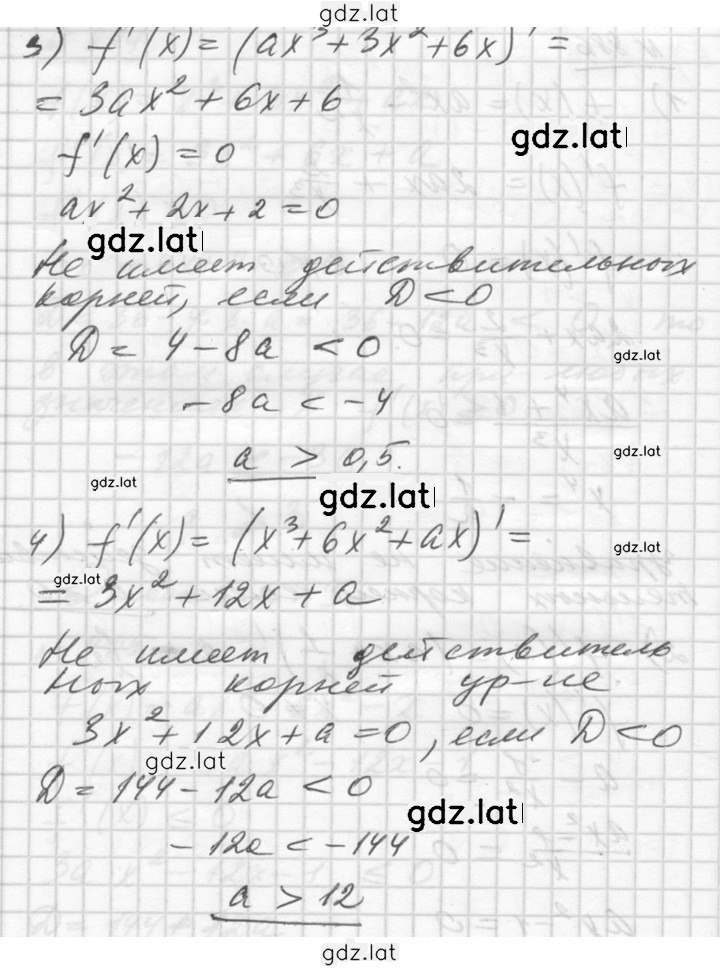 gdz.lat
3) f'(x) = (ax³+3x²+6x)' =
= 3ax² + 6x + 6
gdz.lat
f'(x) = 0
ax² + 2x + 2 = 0
gdz.lat
Не имеет действительных
корней, если D < 0
D = 4 - 8a < 0
gdz.lat
- 8a < - 4
gdz.lat
a > 0,5.
gdz.lat
gdz.lat
4) f'(x) = (x³+6x²+ax)' =
gdz.lat
gdz.lat
= 3x² + 12x + a
Не имеет действитель
ных корней ур-ие
3x² + 12x + a = 0, если D < 0
gdz.lat
D = 144 - 12a < 0
gdz.lat
- 12a < - 144
a > 12
gdz.lat